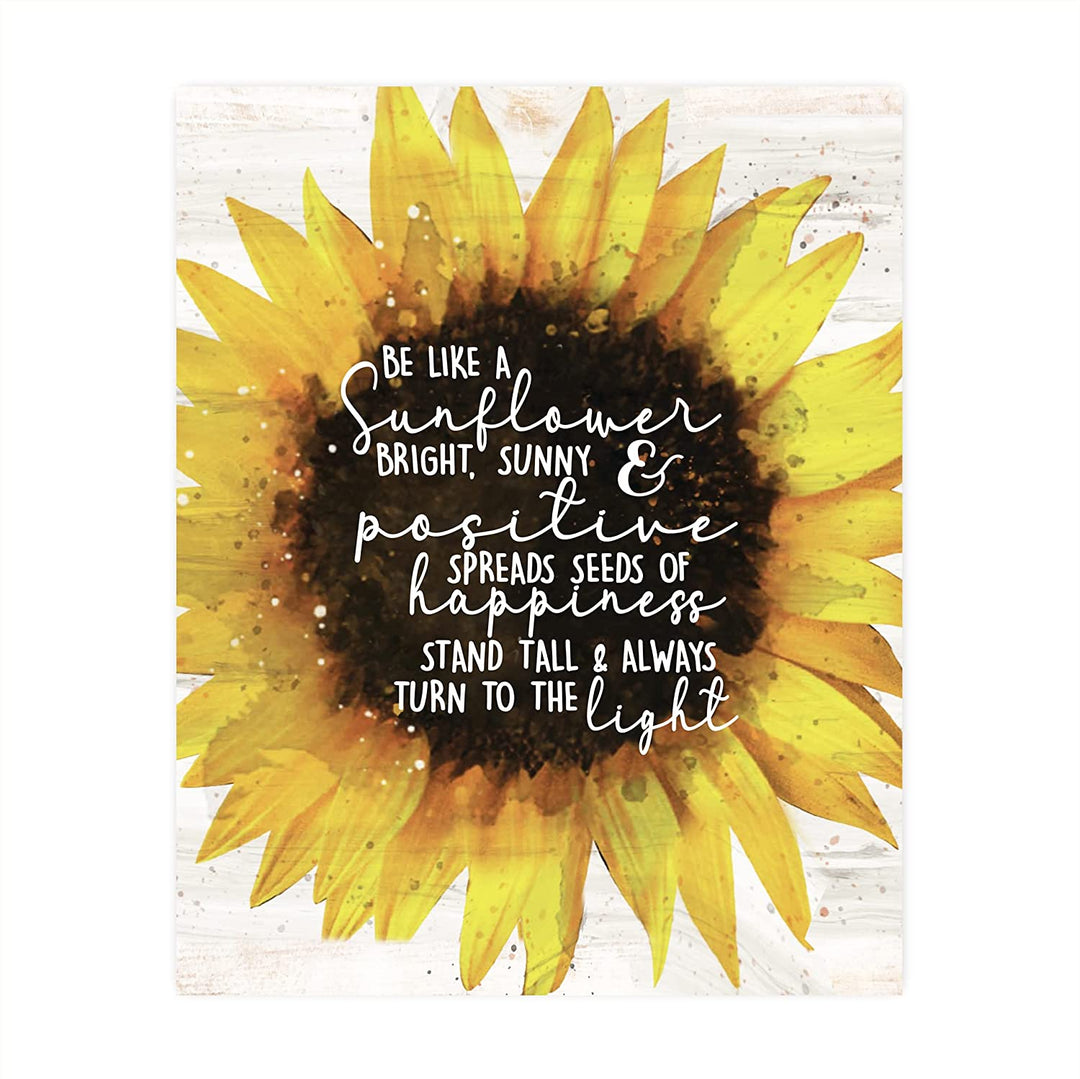 BE LIKE A
Sunflower
BRIGHT, SUNNY &
positive
SPREADS SEEDS OF
happiness
STAND TALL & ALWAYS
TURN TO THE light